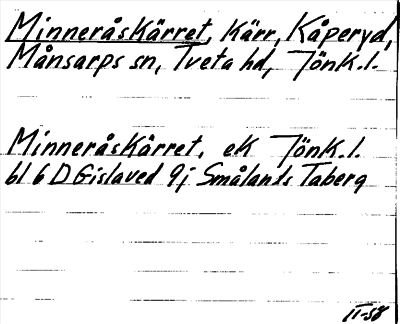 Minneråskärret, kärr, Kåperyd,
Månsarps sn, Tveta hd, Jönk.l.
Minneråskärret, ek Jönk.l.
bl 6 D Gislaved 9j Smålands Taberg
II-58